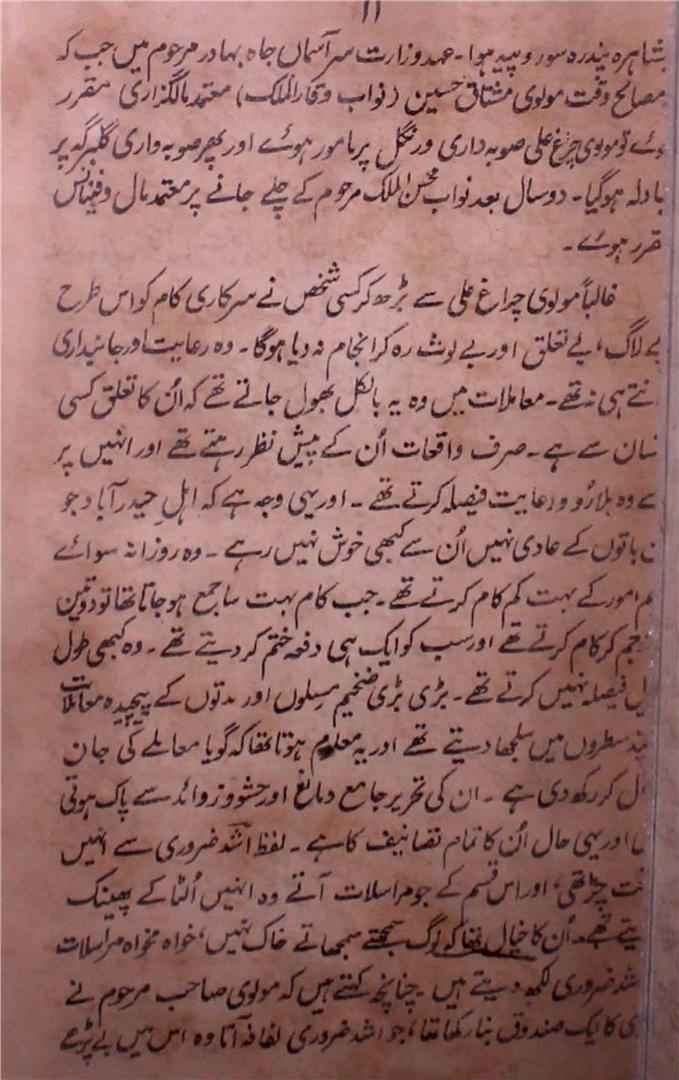 ۱۱
بشاہرہ پندرہ سو روپیہ ہوا۔ عہد وزارت سر آسمان جاہ بہادر مرحوم میں جب کہ
مصالح وقت مولوی مشتاق حسین (نواب وقار الملک) معتمد مالگذاری مقرر
وئے تو مولوی چراغ علی صوبہ داری ورنگل پر مامور ہوئے اور پھر صوبہ داری گلبرگہ پر
بادلہ ہوگیا۔ دو سال بعد نواب محسن الملک مرحوم کے چلے جانے پر معتمد مال وفینانس
قرر ہوئے۔
غالباً مولوی چراغ علی سے بڑھ کر کسی شخص نے سرکاری کام کو اس طرح
بے لاگ، بے تعلق اور بے لوث رہ کر انجام نہ دیا ہوگا۔ وہ رعایت اور جانبداری
انتے ہی نہ تھے۔ معاملات میں وہ یہ بالکل بھول جاتے تھے کہ اُن کا تعلق کسی
نسان سے ہے۔ صرف واقعات اُن کے پیش نظر رہتے تھے اور انہیں پر
سے وہ بلا رُو و رعایت فیصلہ کرتے تھے۔ اور یہی وجہ ہے کہ اہلِ حیدرآباد جو
ن باتوں کے عادی نہیں اُن سے کبھی خوش نہیں رہے۔ وہ روزانہ سوائے
م امور کے بہت کم کام کرتے تھے۔ جب کام بہت سا جمع ہوجاتا تھا تو دو تین
جم کر کام کرتے تھے اور سب کو ایک ہی دفعہ ختم کردیتے تھے۔ وہ کبھی طول
یل فیصلہ نہیں کرتے تھے۔ بڑی بڑی ضخیم مسلوں اور مدتوں کے پیچیدہ معاملات
چند سطروں میں سلجھا دیتے تھے اور یہ معلوم ہوتا تھا کہ گویا معاملے کی جان
ال کر رکھ دی ہے۔ ان کی تحریر جامع و مانع اور حشو و زوائد سے پاک ہوتی
اور یہی حال اُن کا تمام تصانیف کا ہے۔ لفظ اشد ضروری سے انہیں
ت چڑ تھی، اور اس قسم کے جو مراسلات آتے وہ انہیں اُلٹا کے پھینک
یتے تھے۔ اُن کا خیال تھا کہ لوگ سمجھتے سمجھاتے خاک نہیں، خواہ مخواہ مراسلات
شد ضروری لکھ دیتے ہیں۔ چنانچہ کہتے ہیں کہ مولوی صاحب مرحوم نے
ی کا ایک صندوق بنا رکھا تھا، جو اشد ضروری لفافہ آتا وہ اس میں بے پڑھے